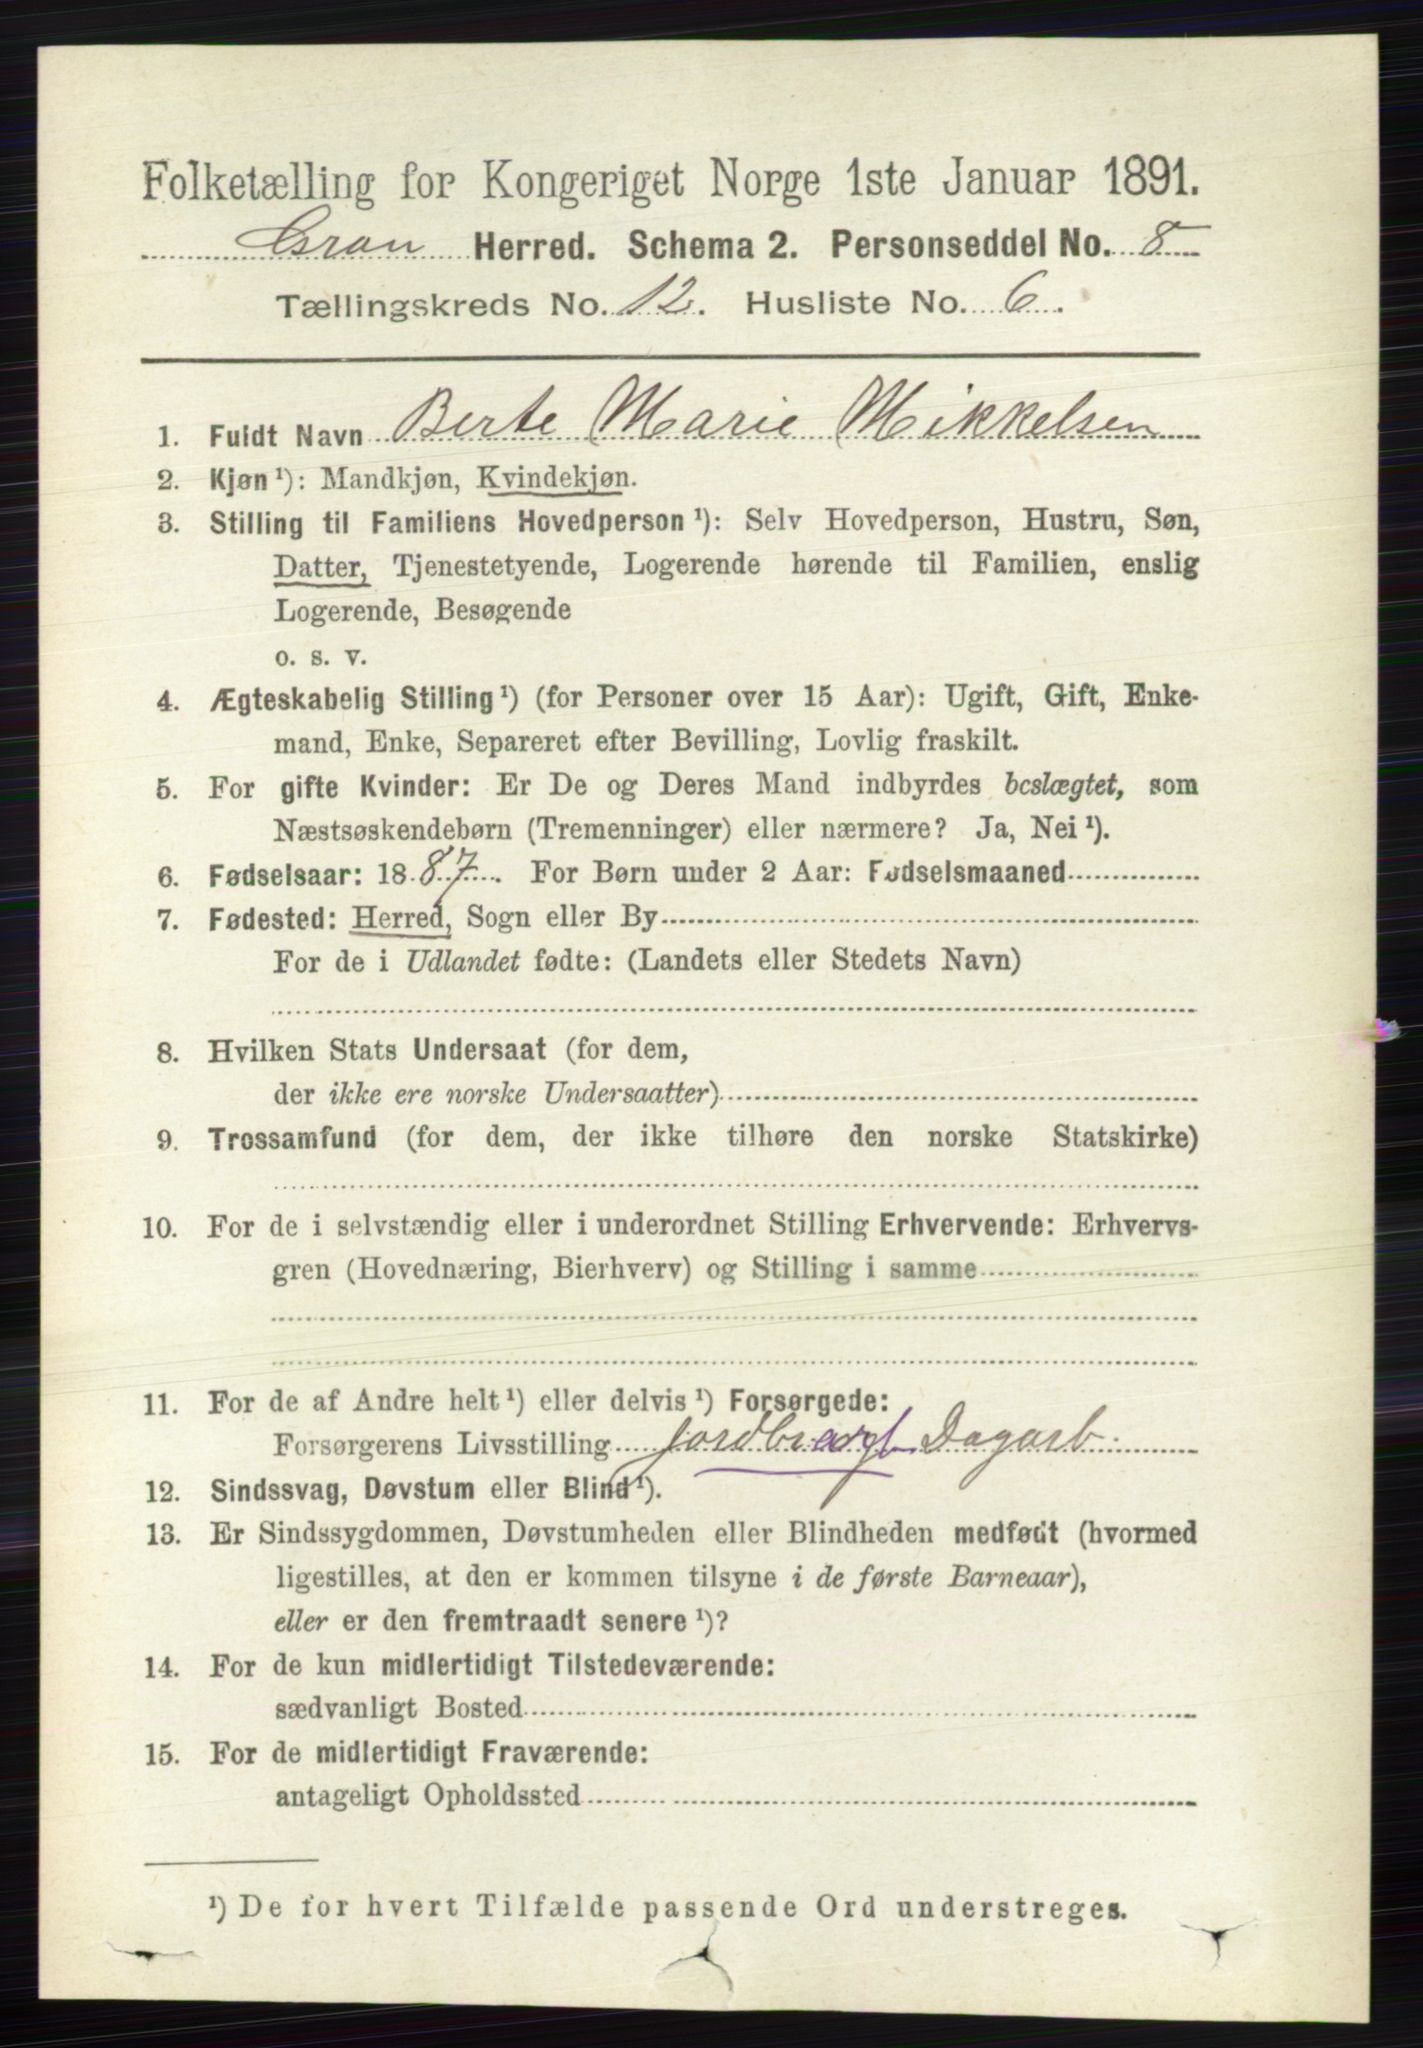 Folketælling for Kongeriget Norge 1ste Januar 1891.
Gran Herred. Schema 2. Personseddel No. 8
Tællingskreds No. 12. Husliste No. 6.
1. Fuldt Navn Berte Marie Mikkelsen
2. Kjøn¹): Mandkjøn, Kvindekjøn.
3. Stilling til Familiens Hovedperson¹): Selv Hovedperson, Hustru, Søn,
Datter, Tjenestetyende, Logerende hørende til Familien, enslig
Logerende, Besøgende
o. s. v.
4. Ægteskabelig Stilling¹) (for Personer over 15 Aar): Ugift, Gift, Enke-
mand, Enke, Separeret efter Bevilling, Lovlig fraskilt.
5. For gifte Kvinder: Er De og Deres Mand indbyrdes beslægtet, som
Næstsøskendebørn (Tremenninger) eller nærmere? Ja, Nei¹).
6. Fødselsaar: 1887. For Børn under 2 Aar: Fødselsmaaned
7. Fødested: Herred, Sogn eller By
For de i Udlandet fødte: (Landets eller Stedets Navn)
8. Hvilken Stats Undersaat (for dem,
der ikke ere norske Undersaatter)
9. Trossamfund (for dem, der ikke tilhøre den norske Statskirke)
10. For de i selvstændig eller i underordnet Stilling Erhvervende: Erhvervs-
gren (Hovednæring, Bierhverv) og Stilling i samme
11. For de af Andre helt¹) eller delvis¹) Forsørgede:
Forsørgerens Livsstilling Dagarb.
12. Sindssvag, Døvstum eller Blind¹).
13. Er Sindssygdommen, Døvstumheden eller Blindheden medfødt (hvormed
ligestilles, at den er kommen tilsyne i de første Barneaar),
eller er den fremtraadt senere¹)?
14. For de kun midlertidigt Tilstedeværende:
sædvanligt Bosted
15. For de midlertidigt Fraværende:
antageligt Opholdssted
¹) De for hvert Tilfælde passende Ord understreges.